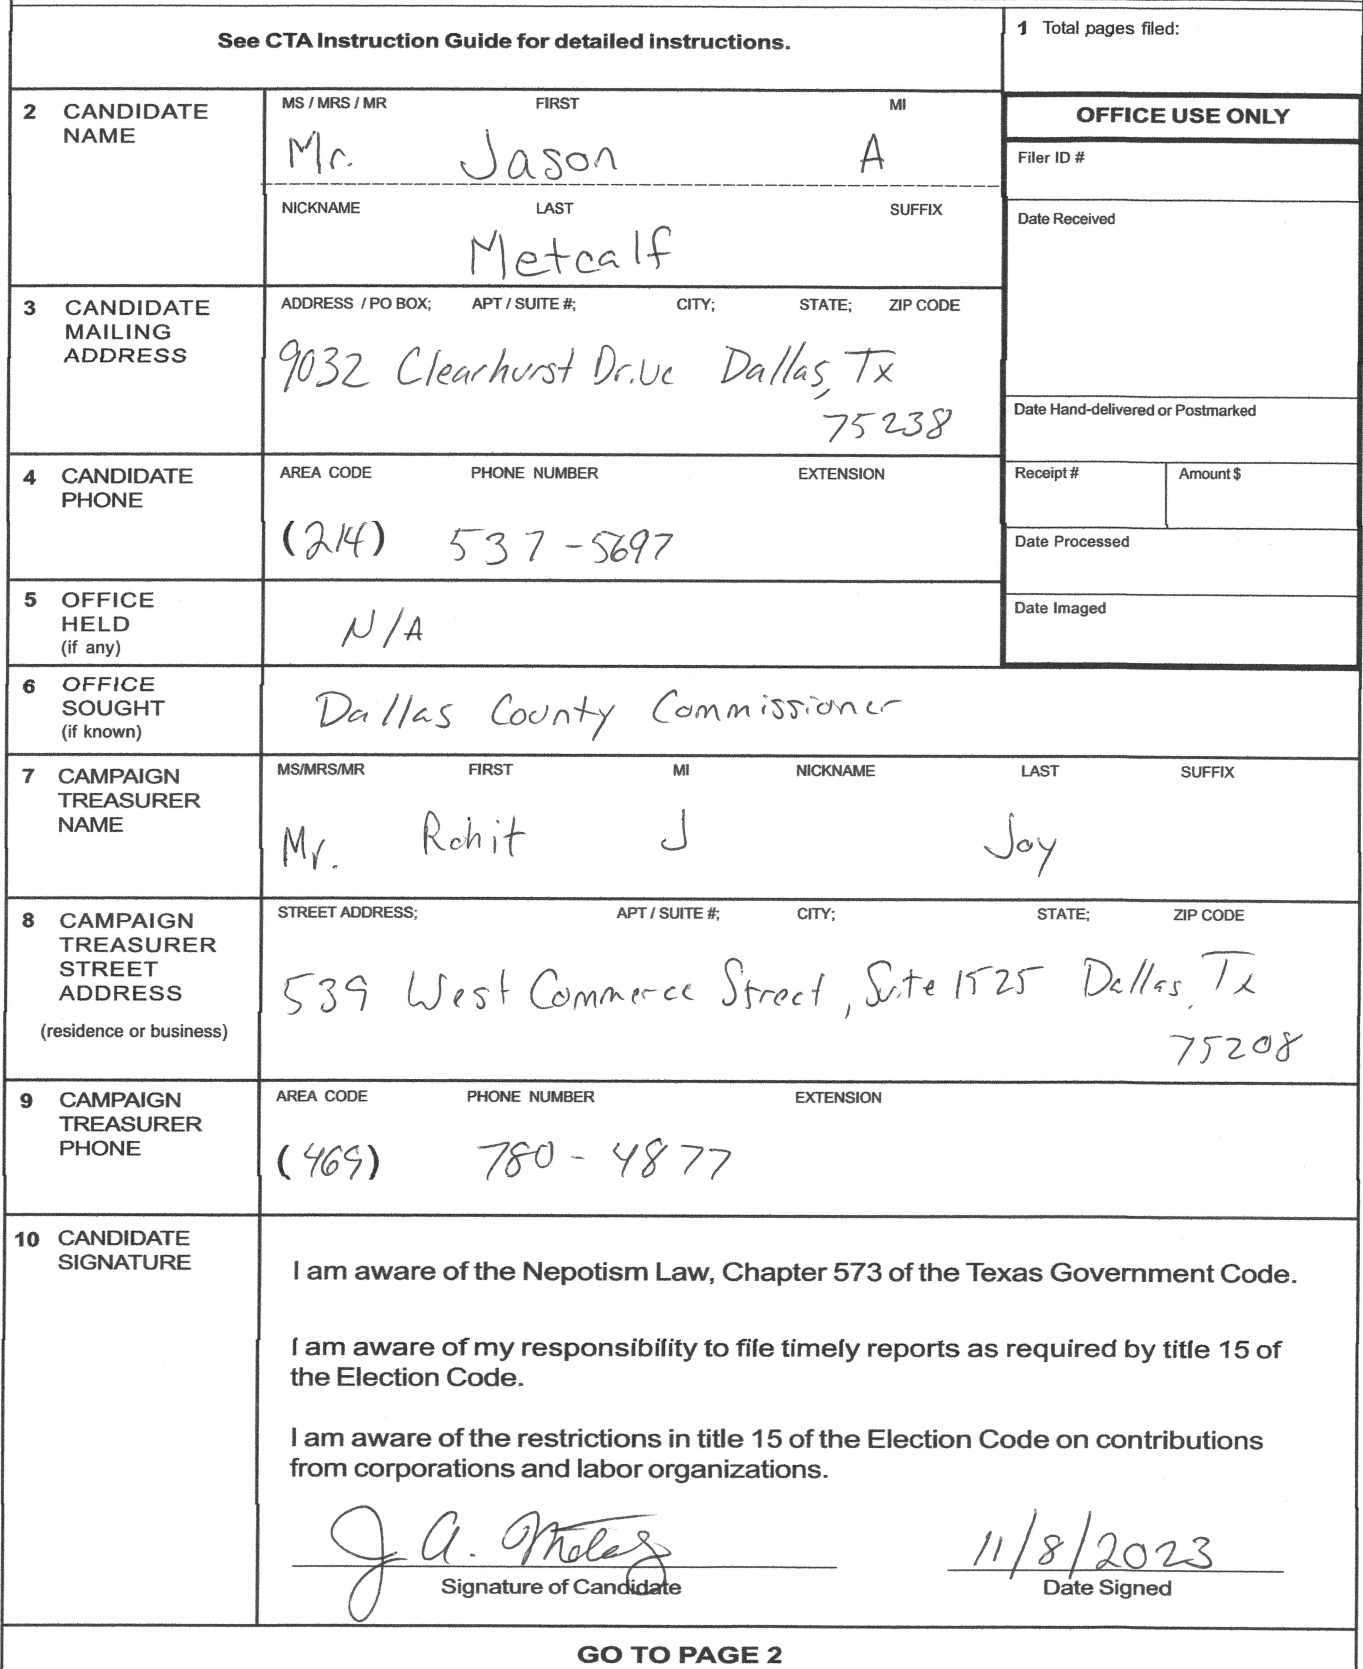 See CTA Instruction Guide for detailed instructions.
1 Total pages filed:
2 CANDIDATE NAME
MS / MRS / MR FIRST MI
Mr. Jason A
NICKNAME LAST SUFFIX
Metcalf
OFFICE USE ONLY
Filer ID #
Date Received
3 CANDIDATE MAILING ADDRESS
ADDRESS / PO BOX; APT / SUITE #; CITY; STATE; ZIP CODE
9032 Clearhurst Drive Dallas, Tx
75238
Date Hand-delivered or Postmarked
4 CANDIDATE PHONE
AREA CODE PHONE NUMBER EXTENSION
(214) 537-5697
Receipt # Amount $
Date Processed
Date Imaged
5 OFFICE HELD (if any)
N/A
6 OFFICE SOUGHT (if known)
Dallas County Commissioner
7 CAMPAIGN TREASURER NAME
MS/MRS/MR FIRST MI NICKNAME LAST SUFFIX
Mr. Rohit J Joy
8 CAMPAIGN TREASURER STREET ADDRESS (residence or business)
STREET ADDRESS; APT / SUITE #; CITY; STATE; ZIP CODE
539 West Commerce Street, Suite 1525 Dallas, Tx
75208
9 CAMPAIGN TREASURER PHONE
AREA CODE PHONE NUMBER EXTENSION
(469) 780-4877
10 CANDIDATE SIGNATURE
I am aware of the Nepotism Law, Chapter 573 of the Texas Government Code.
I am aware of my responsibility to file timely reports as required by title 15 of
the Election Code.
I am aware of the restrictions in title 15 of the Election Code on contributions
from corporations and labor organizations.
J. A. 11/8/2023
Signature of Candidate Date Signed
GO TO PAGE 2